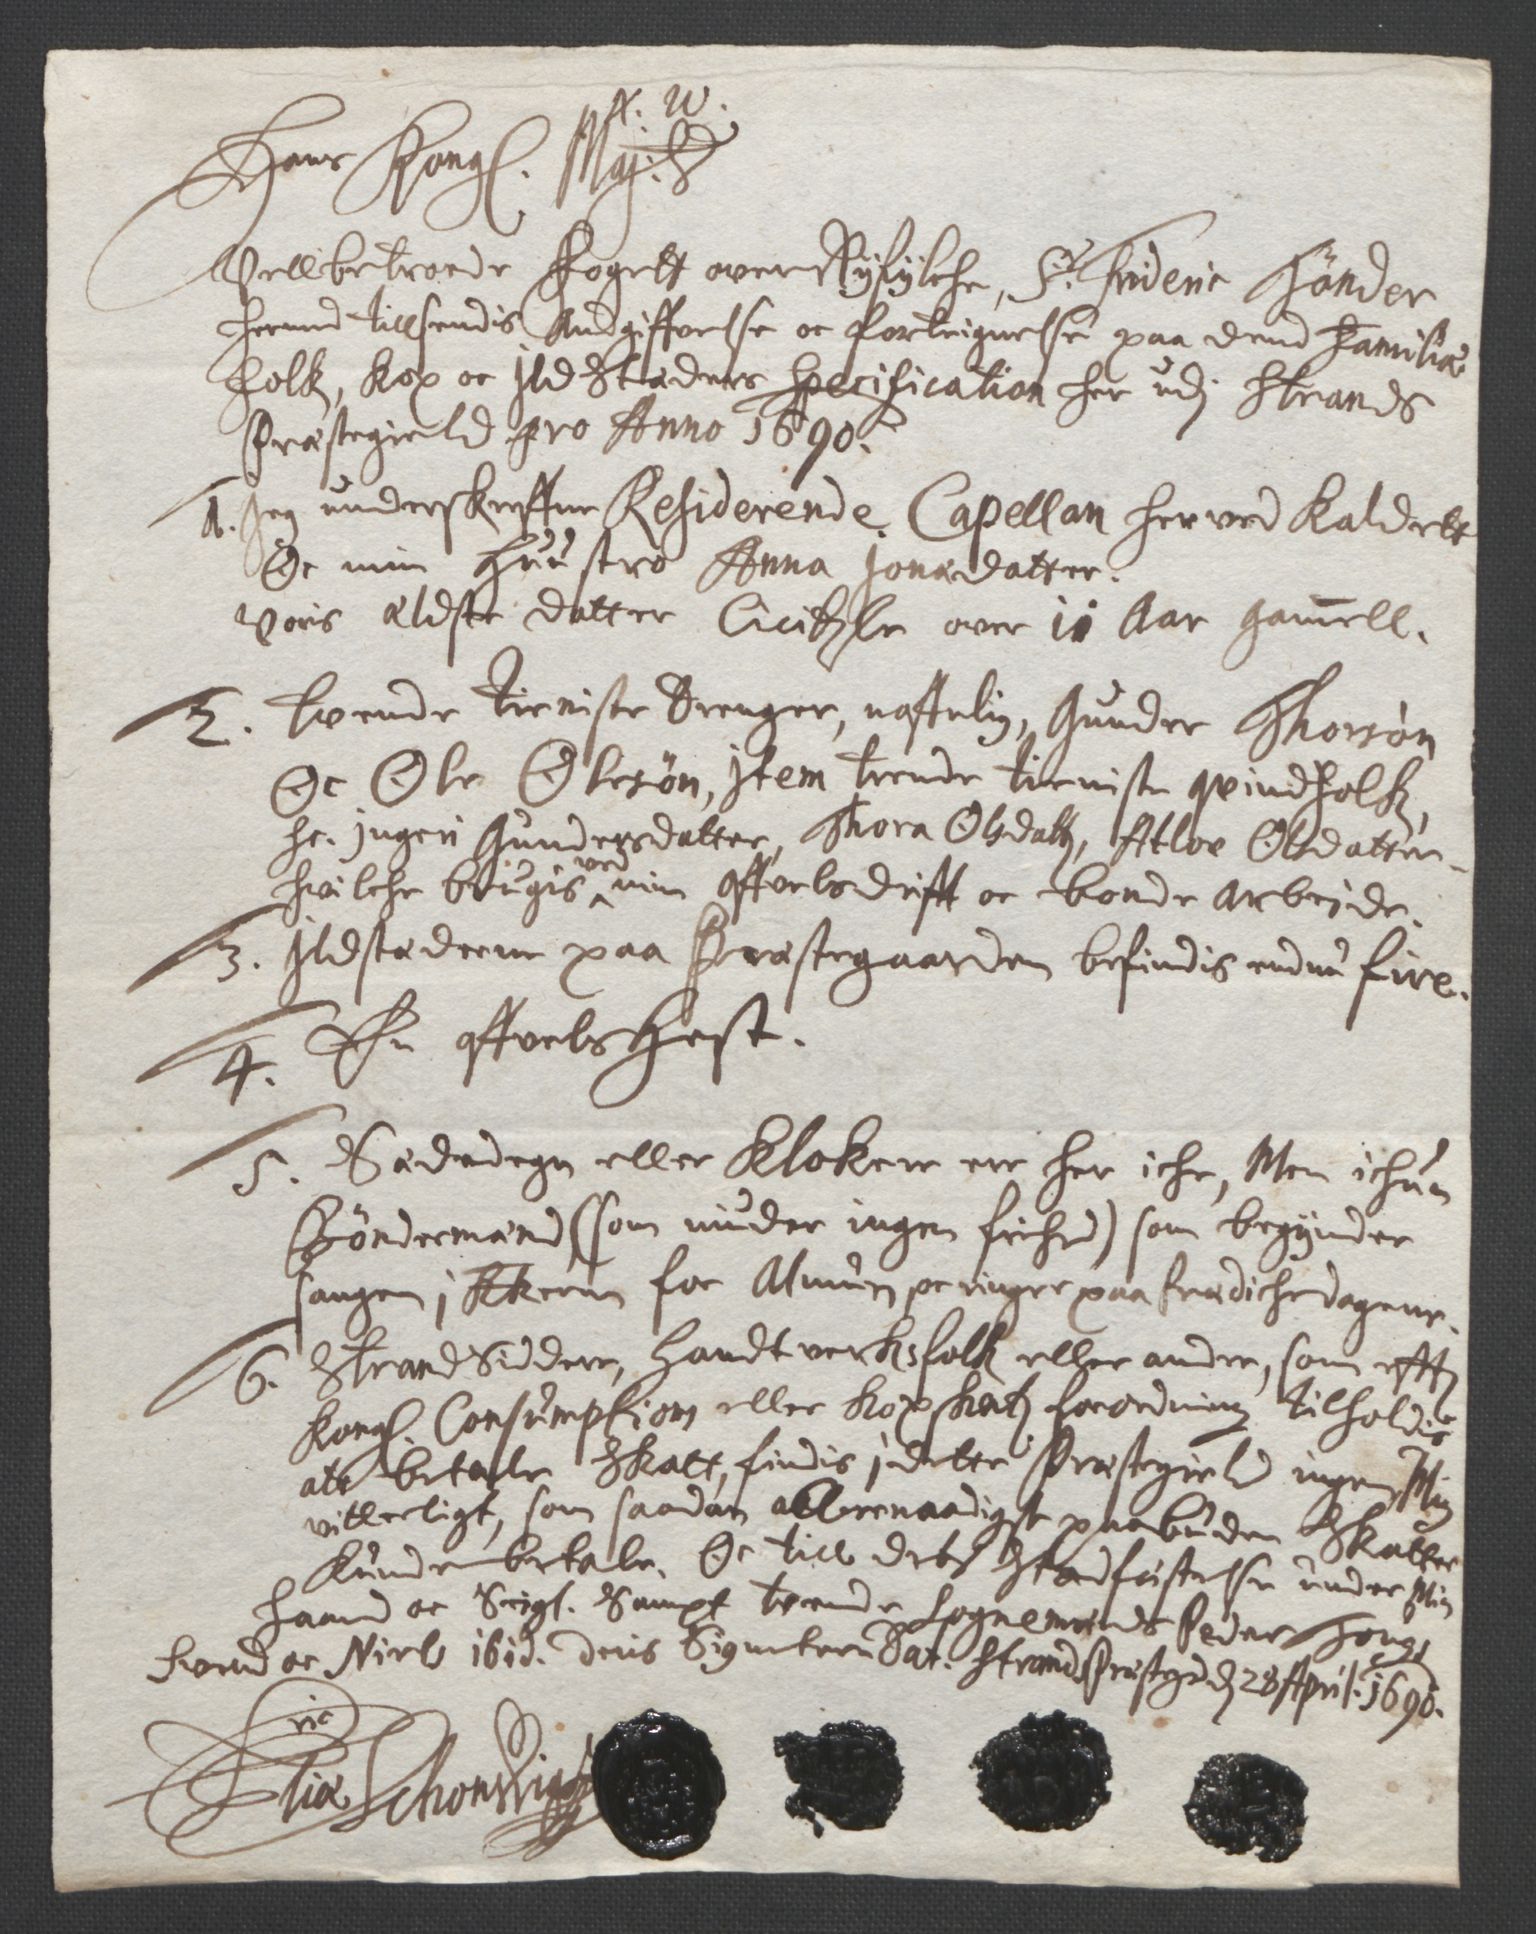 H. W.
Hans Kongl. Maj:ts
Vellbetroede Fogett over Ryfylche, Sr. Frideric Hönder
hermed tillsendis Andgiffvelse oc forteignelse paa dend Familiæ
Folk, Kop oc Ildstæders Specification her udj Strands
Præstegield pro Anno 1690.
1. Jeg underskreffne Residerende Capellan her ved Kaldett
Oc min Huustro Anna Jonædatter.
Voris ældste datter Cicitzle over 10 Aar gam̄ell.
2. Tvende tieniste Drenger, nafnlig, Gunder Thorsön
Oc Ole Olesön, Item trende tieniste qvindfolk,
he. Ingeri Gundersdatter, Thora Olsdatt, Atloe Olsdatter
hvilche brugis ved min afvelsdrifft oc bonde arbejde.
3. Ildstæderne paa Præstegaarden befindis endnu fire.
4. En affvels Hest.
5. Sædedegn eller Klokere err her iche, Men ichun
Böndermænd (som niuder ingen frihed) som begynder
sangen j Kkerne for Almuen oc ringer paa prædichedagene.
6. StrandSiddere, Handtverksfolk eller andre, som effter
Kongl. Consumption eller Kopskatz forordning tilholdis
att betale Skatt, findis j dette Præstegield ingen Mig
vitterligt, som saadan allernaadigst paabuden Skatter
kunde betale. Oc till dets Stadfæstelse under Min
haand oc Seigl. Sampt tvende Sognemænds Peder
Hond oc Niels ibid. deris Signeter Dat. Strands Præstegd d 28 April. 1690.
Elias Schonvig